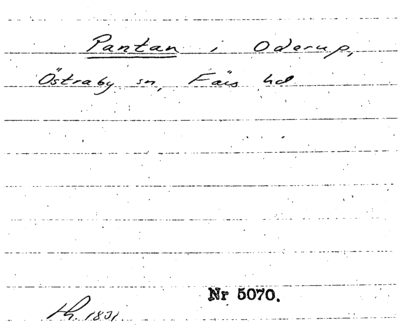 Pantan i Oderup,
Östraby sn, Färs hd
Nr 5070.
1831